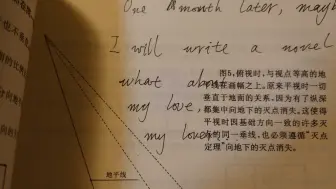 One month later, mayb
I will write a novel
what about
my love,
my lover
图5,俯视时,与视点等高的地
平线在画幅之上。原来平视时一切
垂直于地面的关系,因为有了纵深
都集中向地下的灭点消失。这使得
平视时因基础方向一致的许多灭
点的同一垂线,也必须遵循“灭点
定理”向地下的灭点消失。
地平线